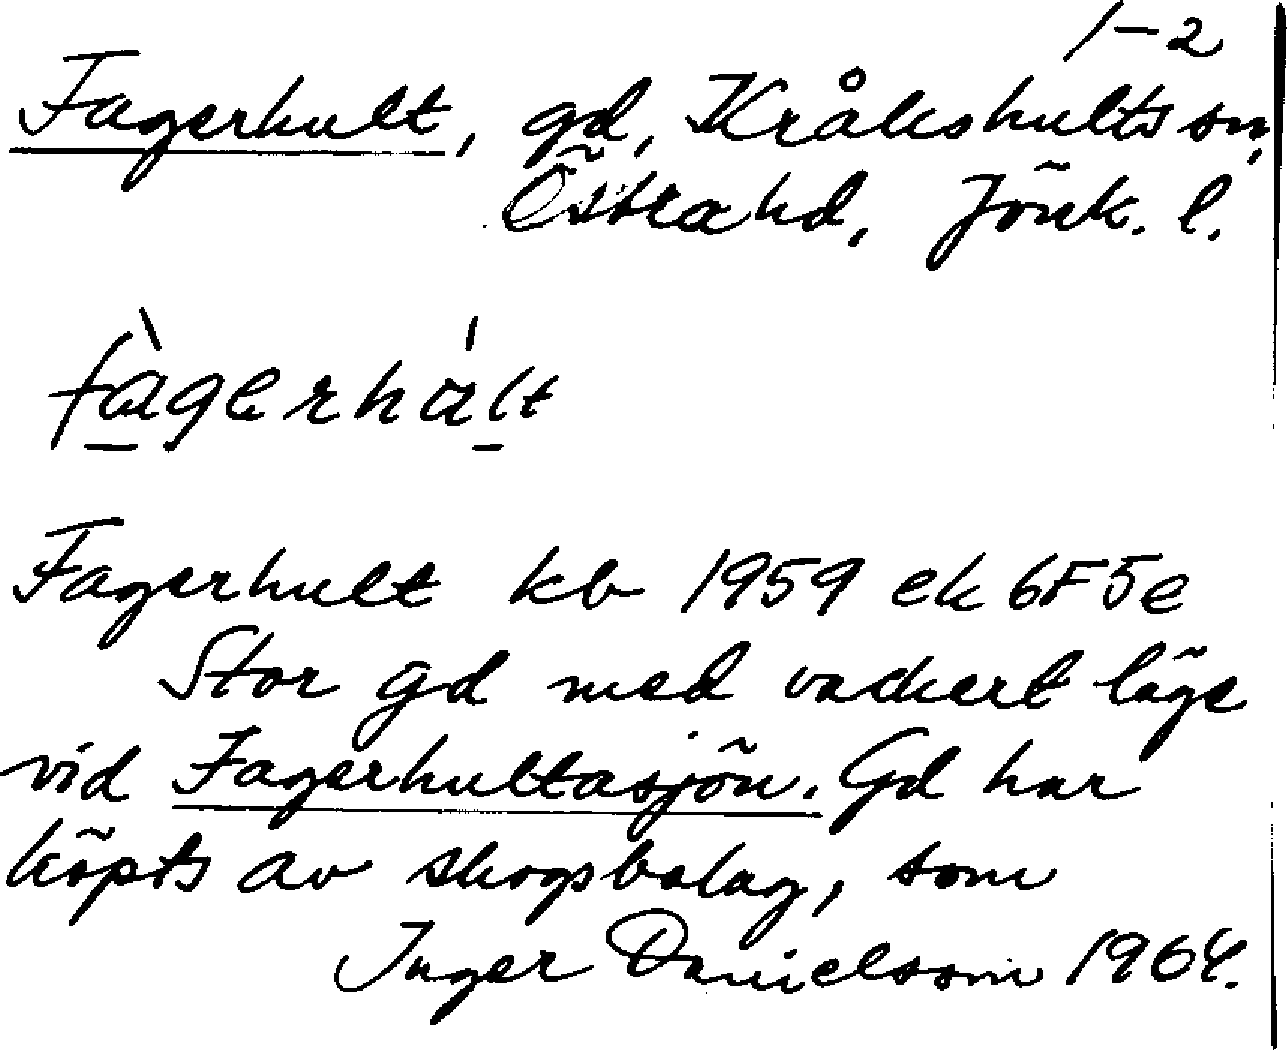 1-2
Fagerhult, gd, Kråkshults sn,
Östra hd, Jönk. l.
fàgerhál̲t
Fagerhult kb 1959 ek 6F5e
Stor gd med vackert läge
vid Fagerhultasjön. Gd har
köpts av skogsbolag, som
Inger Danielsson 1964.